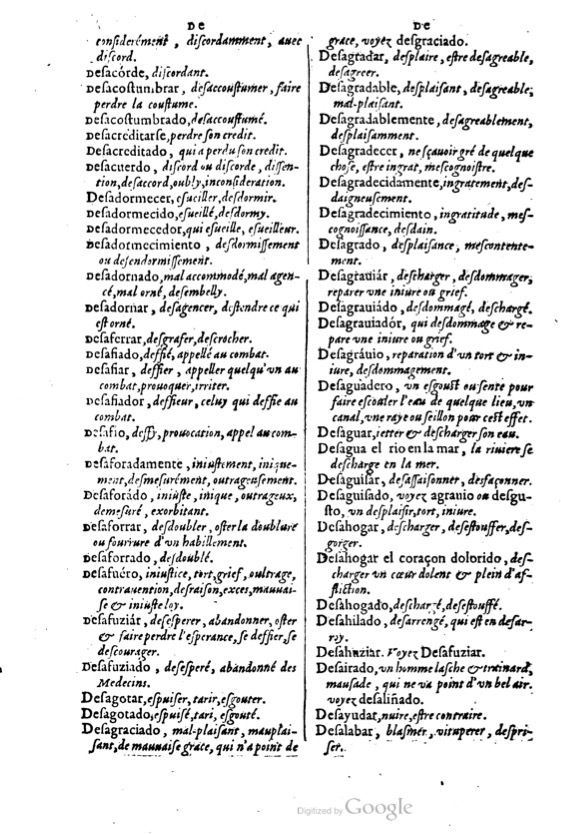 DE
considerément, discordamment, avec
discord.
Desacórde, discordant.
Desacostumbrar, desaccoustumer, faire
perdre la coustume.
Desacostumbrado, desaccoustumé.
Desacreditarse, perdre son credit.
Desacreditado, qui a perdu son credit.
Desacuerdo, discord ou discorde, dissen-
tion, desaccord, oubly, inconsideration.
Desadormecer, esueiller, desdormir.
Desadormecido, esueillé, desdormy.
Desadormecedor, qui esueille, esueilleur.
Desadormecimiento, desdormissement
ou desendormissement.
Desadornado, mal accommodé, mal agen-
cé, mal orné, desembelly.
Desadornar, desagencer, destendre ce qui
est orné.
Desaferrar, desgrafer, descrocher.
Desafiado, deffié, appellé au combat.
Desafiar, deffier, appeller quelqu'vn au
combat, prouoquer, irriter.
Desafiador, deffieur, celuy qui deffie au
combat.
Desafio, deffy, prouocation, appel au com-
bat.
Desaforadamente, iniustement, inique-
ment, desmesurément, outrageusement.
Desaforádo, iniuste, inique, outrageux,
demesuré, exorbitant.
Desaforrar, desdoubler, oster la doublure
ou fourrure d'vn habillement.
Desaforrado, desdoublé.
Desafuéro, iniustice, tort, grief, oultrage,
contrauention, desraison, exces, mauuai-
se & iniuste loy.
Desafuziár, desesperer, abandonner, oster
& faire perdre l'esperance, se deffier, se
descourager.
Desafuziado, desesperé, abandonné des
Medecins.
Desagotar, espuiser, tarir, esgouter.
Desagotado, espuisé, tari, esgouté.
Desagraciado, mal-plaisant, mauplai-
sant, de mauuaise grace, qui n'a point de
DE
grace, voyez desgraciado.
Desagradar, desplaire, estre desagreable,
desagreer.
Desagradable, desplaisant, desagreable,
mal-plaisant.
Desagradablemente, desagreablement,
desplaisamment.
Desagradecer, ne sçauoir gré de quelque
chose, estre ingrat, mescognoistre.
Desagradecidamente, ingratement, des-
daigneusement.
Desagradecimiento, ingratitude, mes-
cognoissance, desdain.
Desagrado, desplaisance, mescontente-
ment.
Desagrauiár, descharger, desdommager,
reparer vne iniure ou grief.
Desagrauiádo, desdommagé, deschargé.
Desagrauiadór, qui desdommage & re-
pare vne iniure ou grief.
Desagráuio, reparation d'vn tort & in-
iure, desdommagement.
Desaguadero, vn esgoust ou sente pour
faire escouler l'eau de quelque lieu, vn
canal, vne raye ou seillon pour cest effet.
Desaguar, ietter & descharger son eau.
Desagua el rio en la mar, la riuiere se
descharge en la mer.
Desaguisar, desassaisonner, desfaçonner.
Desaguisado, voyez agrauio ou desgu-
sto, vn desplaisir, tort, iniure.
Desahogar, descharger, desestouffer, des-
gorger.
Desahogar el coraçon dolorido, des-
charger vn cœur dolent & plein d'af-
fliction.
Desahogado, deschargé, desestouffé.
Desahilado, desarrengé, qui est en desar-
roy.
Desahuziar. Voyez Desafuziar.
Desairado, vn homme lasche & trainard,
mausade, qui ne va point d'vn bel air.
voyez desaliñado.
Desayudar, nuire, estre contraire.
Desalabar, blasmer, vituperer, despri-
ser.
Digitized by Google